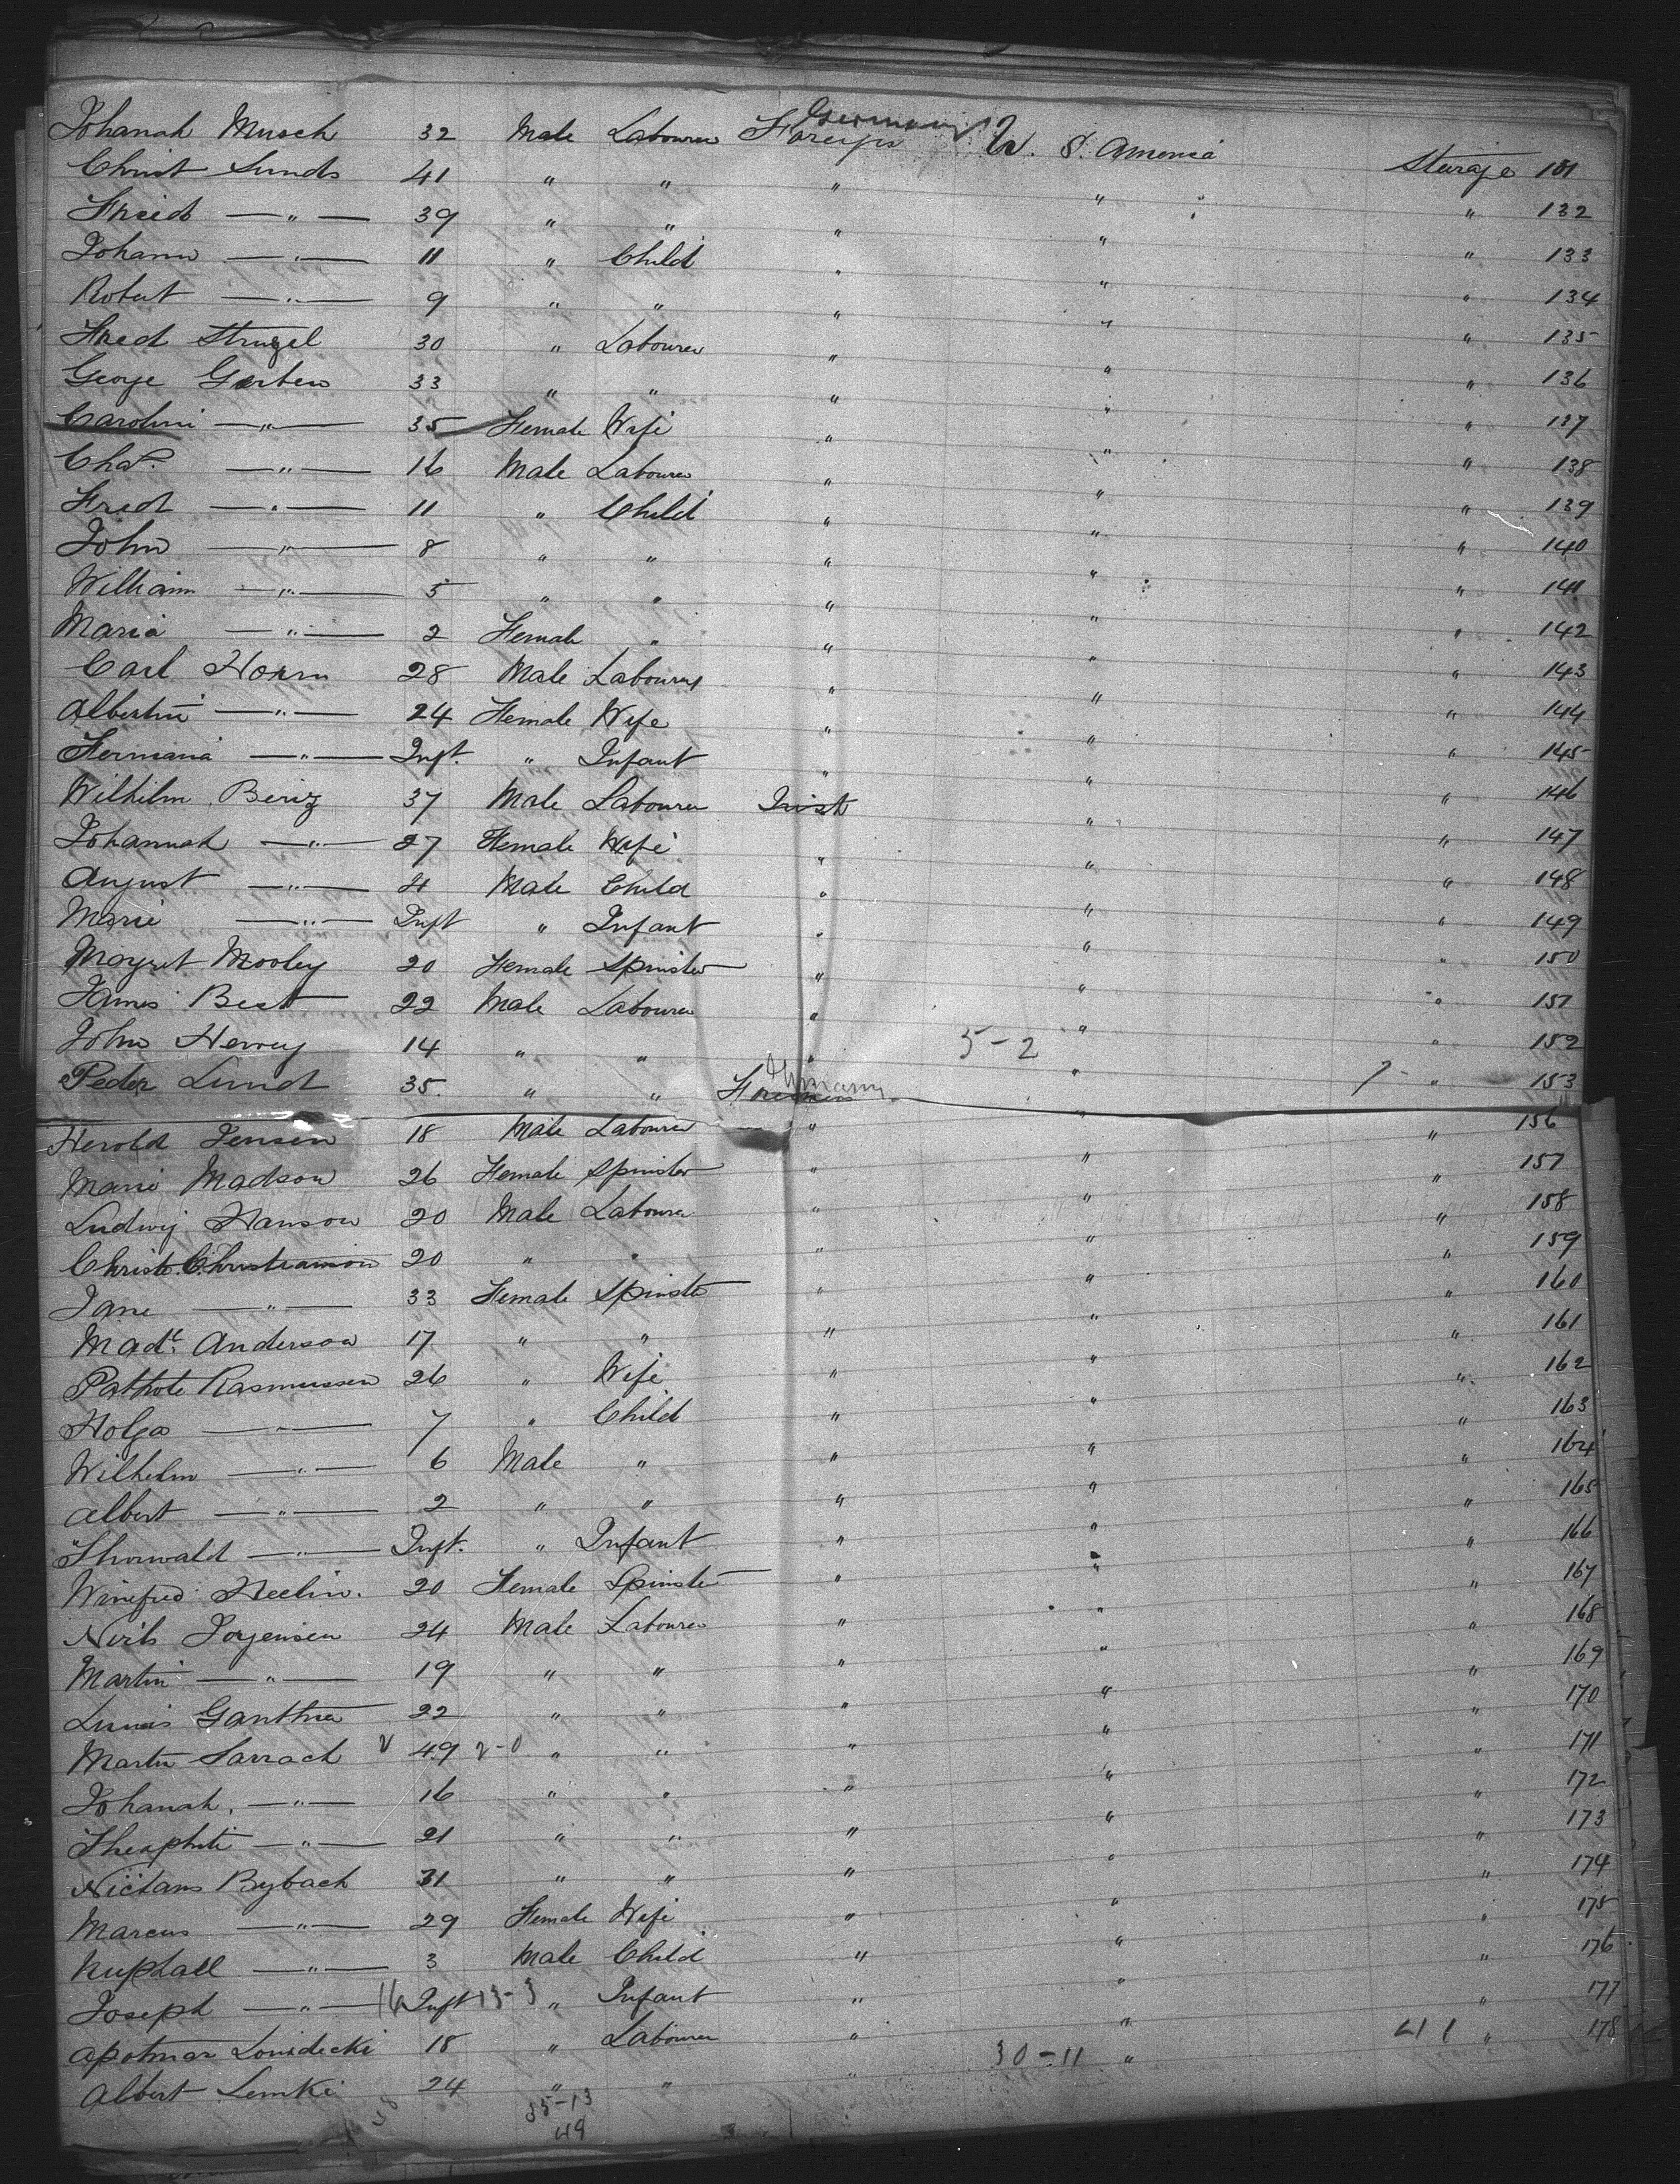 Germany
Johanah Musch 32 Male Labourer Foreign U. S. America Steerage 131
Christ Sunds 41 " " " " " 132
Freid — " — 39 " " " " " 133
Johann — " — 11 " Child " " " 134
Robert — " — 9 " " " " " 135
Fred Strugel 30 " Labourer " " " 136
George Gerten 33 " " " " " 137
Carolini — " — 35 Female Wife " " " 138
Chas. — " — 16 Male Labourer " " " 139
Fred — " — 11 " Child " " " 140
John — " — 8 " " " " " 141
William — " — 5 " " " " " 142
Maria — " — 2 Female " " " " 143
Carl Horn 28 Male Labourer " " " 144
Albertine — " — 24 Female Wife " " " 145
Hermania — " — Inft. " Infant " " " 146
Wilhilm Benz 37 Male Labourer Irish " " 147
Johannah — " — 27 Female Wife " " " 148
August — " — 4 Male Child " " " 149
Marie — " — Inft " Infant " " " 150
Margret Mooley 20 Female Spinster " " " 151
James Best 22 Male Labourer " " " 152
John Hervey 14 " " " 5-2 " " 153
Peder Lund 35. " " Foreign "
Herold Jensen 18 Male Labourer " " " 156
Marie Madson 26 Female Spinster " " " 157
Ludwig Hanson 20 Male Labourer " " " 158
Christ. Christianson 20 " " " " " 159
Jane — " — 33 Female Spinster " " " 160
Madl. Anderson 17 " " " " " 161
Pathole Rasmussen 26 " Wife " " " 162
Holga — " — 7 " Child " " " 163
Wilhelm — " — 6 Male " " " " 164
Albert — " — 2 " " " " " 165
Thorwald — " — Inft. " Infant " " " 166
Winifred Heelin. 20 Female Spinster " " " 167
Neils Jorgensen 24 Male Labourer " " " 168
Martin — " — 19 " " " " " 169
Louis Ganthner 22 " " " " " 170
Martin Sarrach 49 2-0 " " " " " 171
Johanah. — " — 16 " " " " " 172
Theophite — " — 21 " " " " " 173
Nictans Bybach 31 " " " " " 174
Marcus — " — 29 Female Wife " " " 175
Nuphall — " — 3 Male Child " " " 176
Joseph — " — 16 Inft 13-3 " Infant " " " 177
Apotmar Lonidecki 18 " Labourer " " 41 " 178
Albert Lemki 24 " " " 30-11 "
38 35-13
49